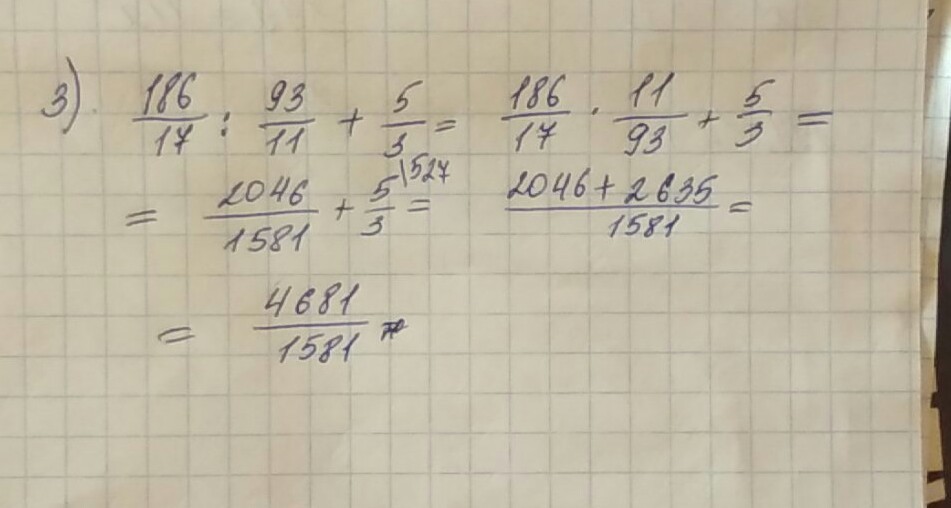 3) 186/17 : 93/11 + 5/3 = 186/17 · 11/93 + 5/3 =
= 2046/1581 + 5/3 \527 = (2046 + 2635)/1581 =
= 4681/1581